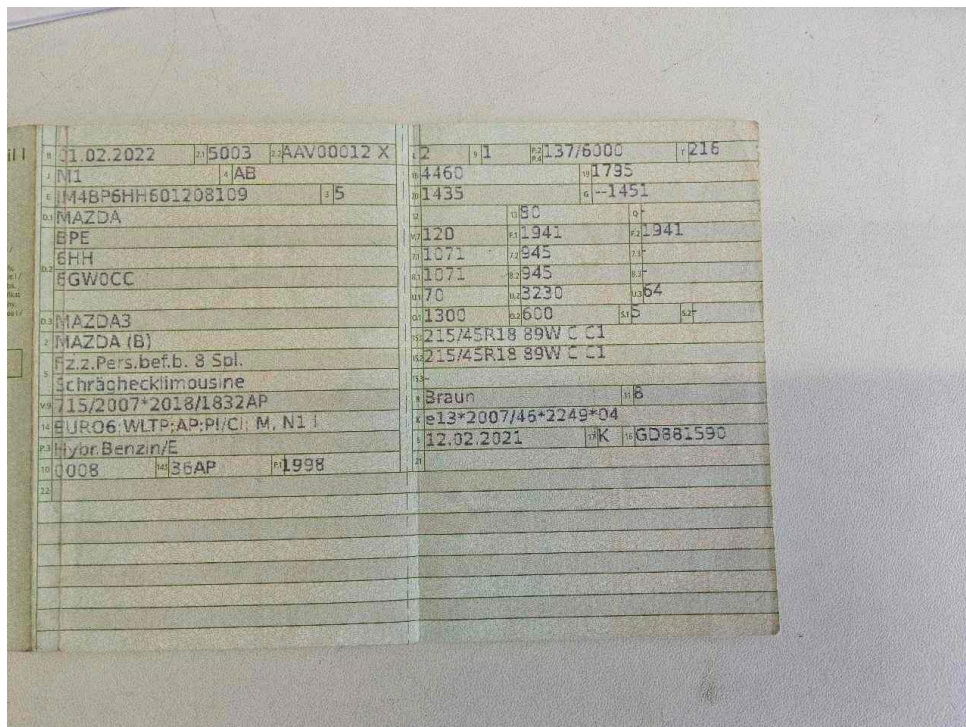 B 01.02.2022 2.1 5003 2.2 AAV00012 X
J M1 4 AB
E JM4BP6HH601208109 3 5
D.1 MAZDA
D.2 BPE
6HH
6GW0CC
D.3 MAZDA3
2 MAZDA (B)
5 Fz.z.Pers.bef.b. 8 Spl.
Schräghecklimousine
V.9 715/2007*2018/1832AP
14 EURO6;WLTP;AP;PI/CI; M, N1 I
P.3 Hybr.Benzin/E
10 0008 14.1 36AP P.1 1998
22
L 2 9 1 P.2 P.4 137/6000 T 216
18 4460 19 1795
20 1435 G --1451
12 - 13 80 Q -
V.7 120 F.1 1941 F.2 1941
7.1 1071 7.2 945 7.3 -
8.1 1071 8.2 945 8.3 -
U.1 70 U.2 3230 U.3 64
O.1 1300 O.2 600 S.1 5 S.2 -
15.1 215/45R18 89W C C1
15.2 215/45R18 89W C C1
15.3 -
R Braun 11 8
K e13*2007/46*2249*04
6 12.02.2021 17 K 16 GD881590
21